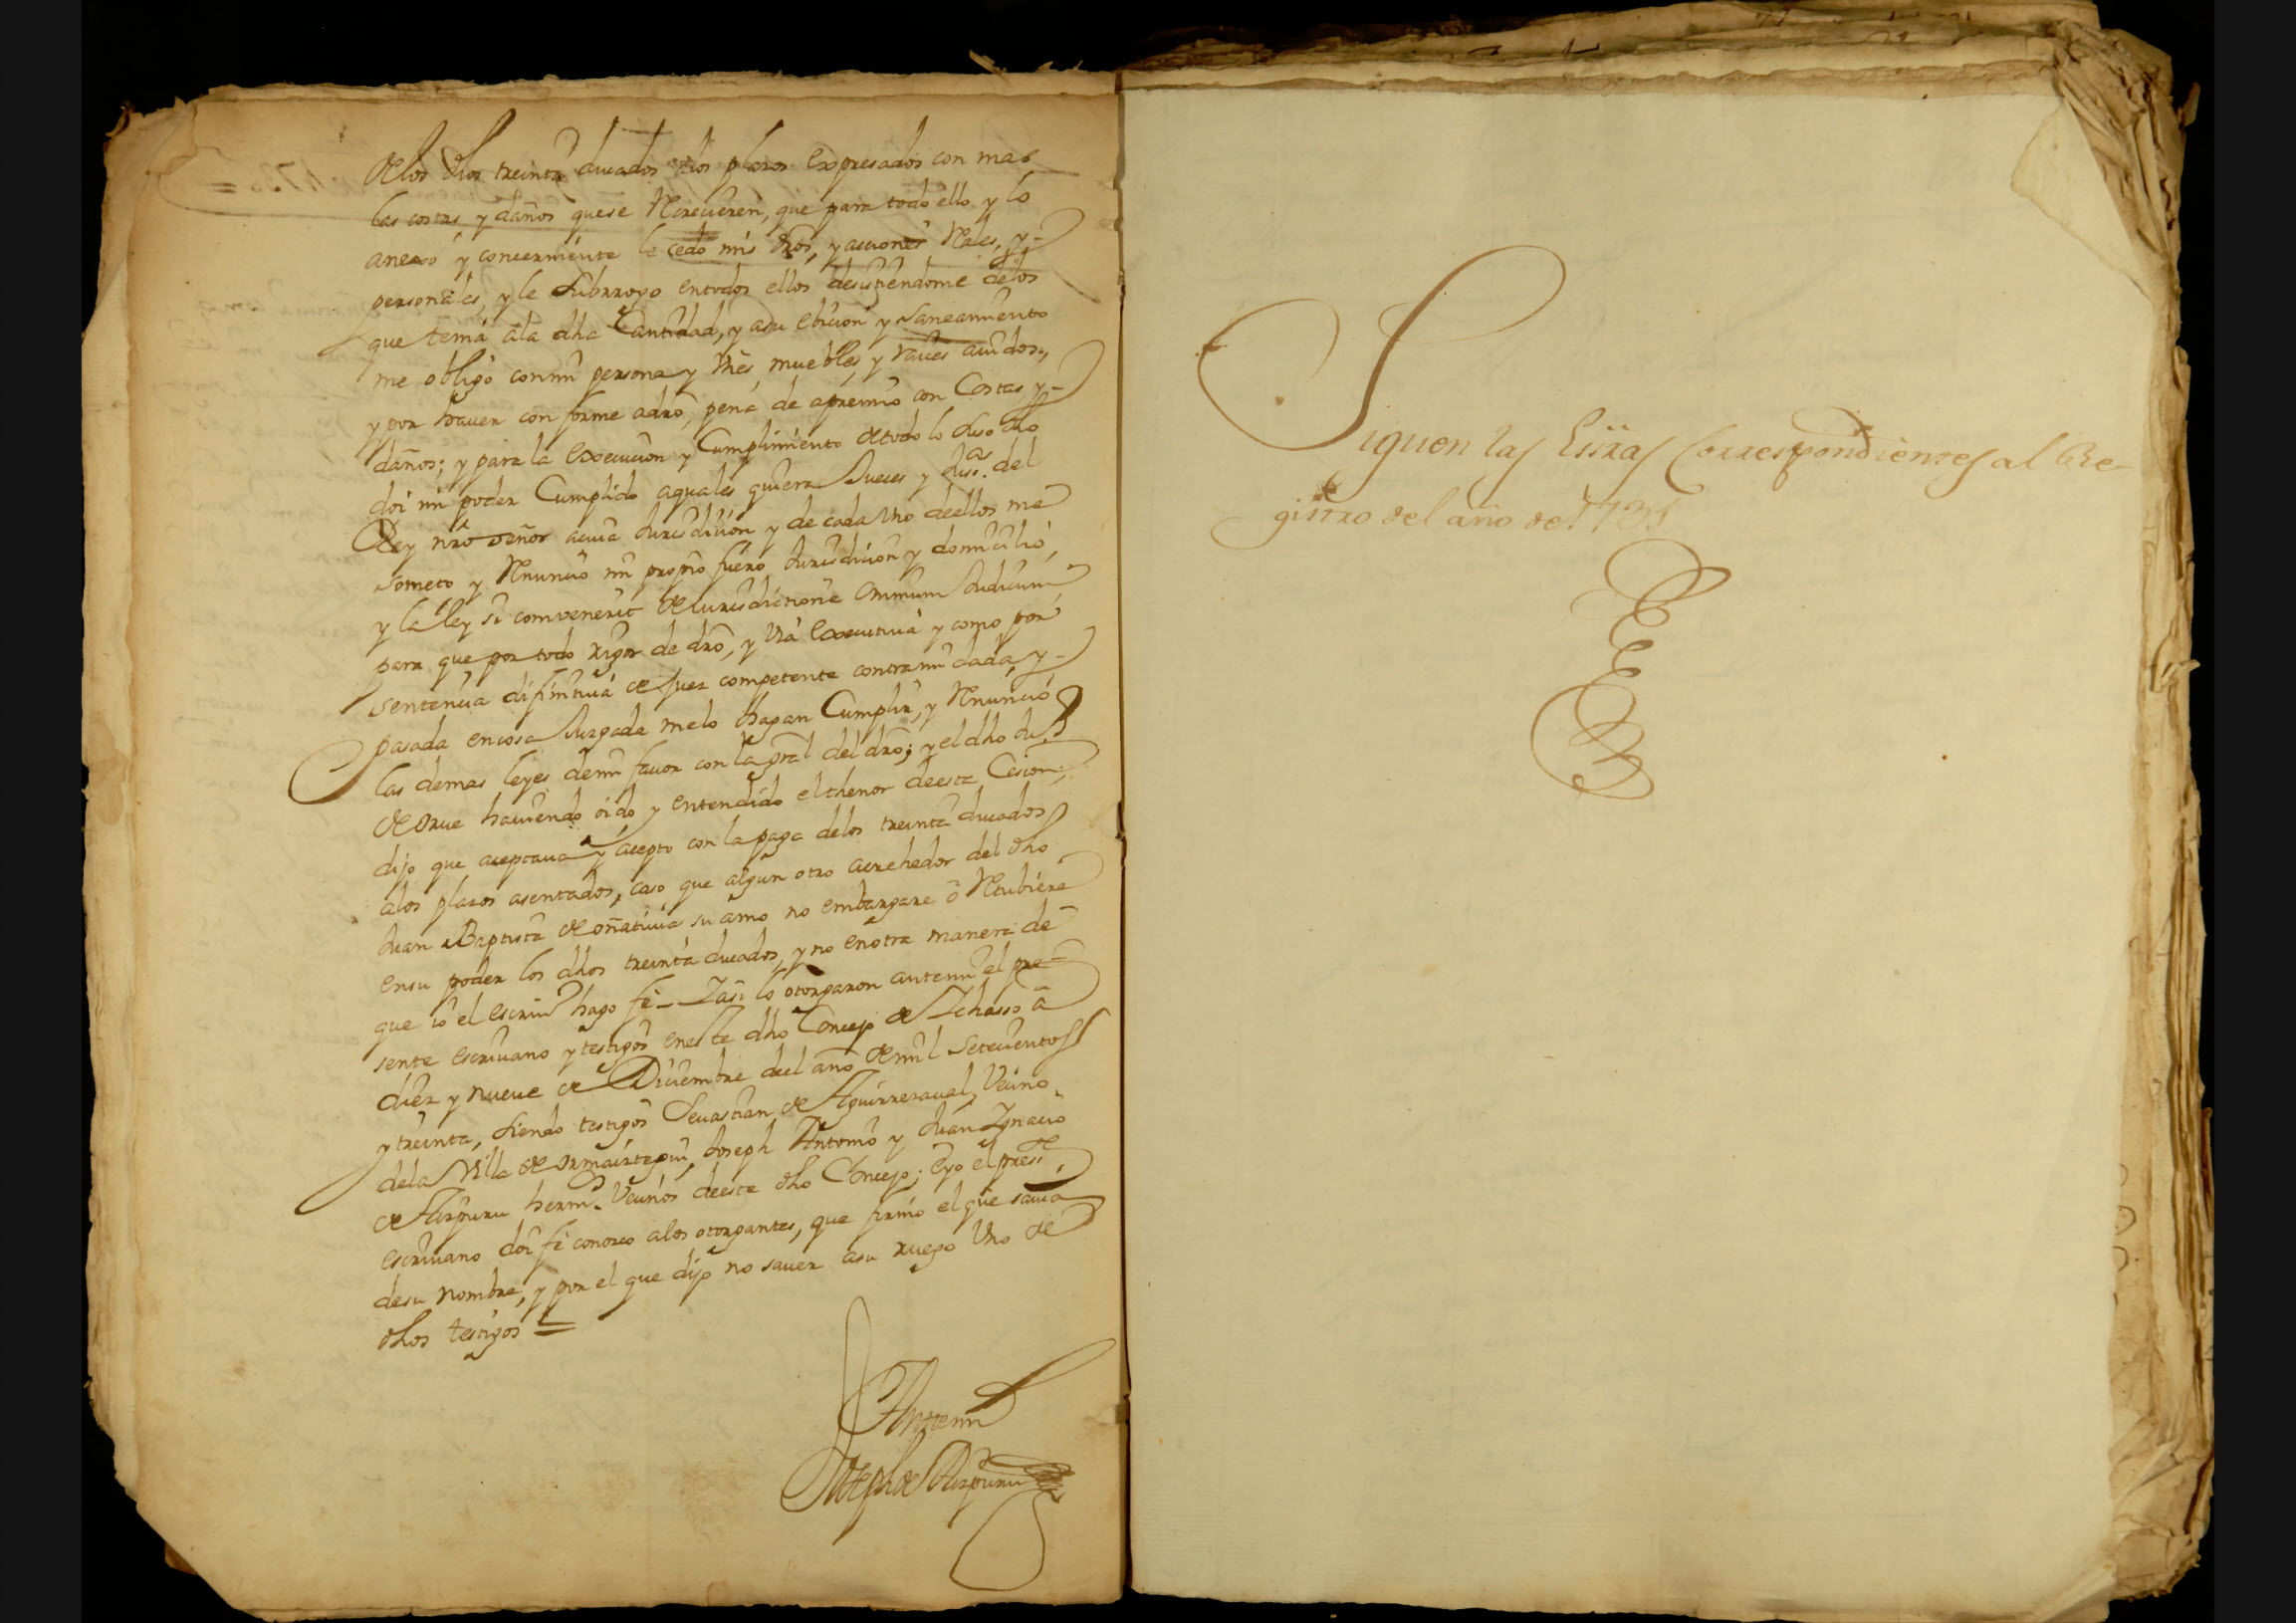 de los dhos treinta ducados a los plazos expresados con mas
las costas y daños que se Recrecieren, que para todo ello y lo
anexo y concerniente le cedo mis dros, y acciones Rales, y-
personales, y le Subrrogo en todos ellos desistiendome de los
que tenia a la dha Cantidad, y a su ebicion y saneamiento
me obligo con mi persona y Vnes muebles, y raices auidos,
y por hauer conforme a dro, pena de apremio con Costas y-
daños; y para la execucion y Cumplimiento de todo lo suso dho
doi mi poder Cumplido a quales quiera Jueces y Juss. del
Rey nro señor a cuia Jurisdicion y de cada Vno de ellos me
someto y Renuncio mi proprio fuero Jurisdicion y domicilio,
y la ley si convenerit de iurisdictione omnium Judicum
para que por todo rigor de dro, y Via executiua y como por
sentencia difinitiua de Juez competente contra mi dada, y-
pasada en cosa Juzgada me lo hagan Cumplir, y Renuncio
las demas leyes de mi fauor con la gral del dro; y el dho Ju.
de orue hauiendo oido y entendido el thenor de esta Cesion,
dijo que aceptaua y acepto con la paga de los treinta ducados
a los plazos asentados, caso que algun otro acrehedor del dho
Juan Baptista de oñatiuia su amo no embargare o Retubiere
en su poder los dhos treinta ducados, y no en otra manera de
que io el escriuo hago fe - I asi lo otorgaron ante mi el pre-
sente escriuano y testigos en este dho Concejo de Ichasso a
diez y nueue de Diciembre del año de mil setecientos
y treinta, siendo testigos Seuastian de Aguirrezaual, Vecino
de la Villa de ormaiztegui, Joseph Antonio y Juan Ignacio
de Aizpuru herms. Vecinos de este dho Concejo; e yo el presste
escriuano doi fe conozco a los otorgantes, que firmo el que sauia
de su nombre, y por el que dijo no sauer a su ruego Vno de
dhos testigos =
Ante mi
Joseph de Aizpuru
Siguen las Essras Correspondientes al Re-
gistro del año de 1731